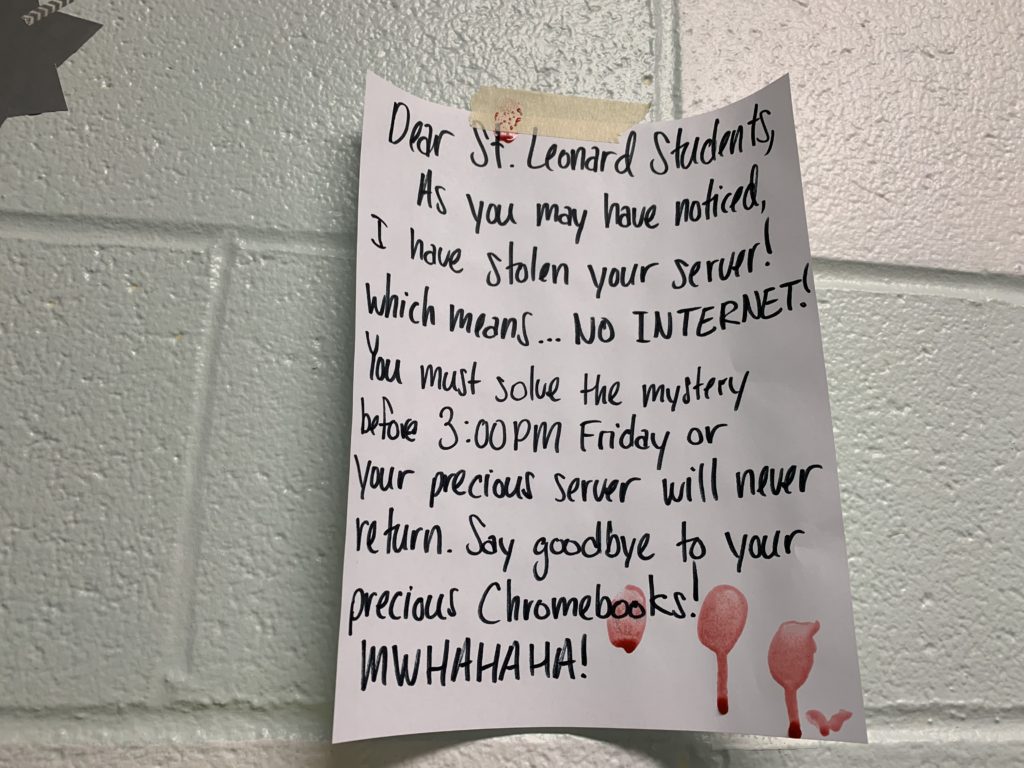 Dear St. Leonard Students,
As you may have noticed,
I have stolen your server!
Which means... NO INTERNET!
You must solve the mystery
before 3:00PM Friday or
your precious server will never
return. Say goodbye to your
precious Chromebooks!
MWHAHAHA!